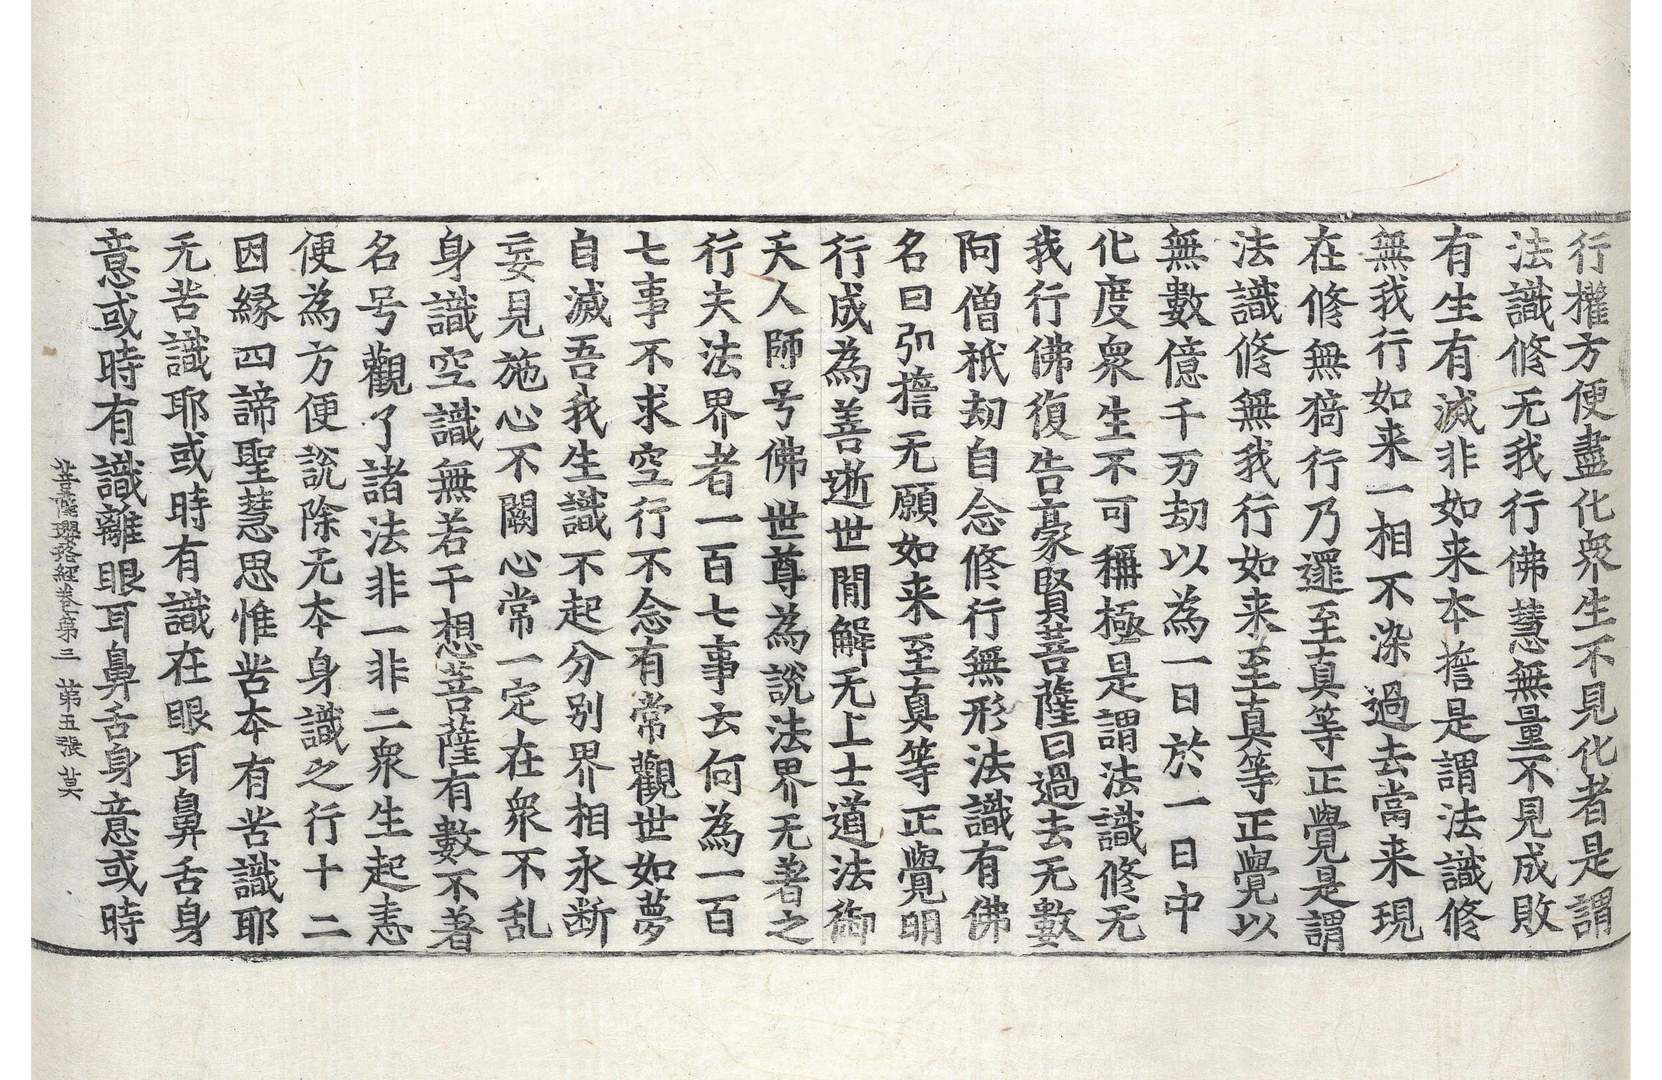 行權方便盡化衆生不見化者是謂
法識修无我行佛慧無量不見成敗
有生有滅非如来本摿是謂法識修
無我行如来一相不染過去當来現
在修無猗行乃還至真等正覺是謂
法識修無我行如来至真等正覺以
無數億千万劫以為一日於一日中
化度衆生不可稱極是謂法識修无
我行佛復告豪賢菩薩曰過去无數
阿僧祇劫自念修行無形法識有佛
名曰弘摿无願如来至真等正覺明
行成為善逝世閒解无上士道法御
天人師号佛世尊為說法界无著之
行夫法界者一百七事云何為一百
七事不求空行不念有常觀世如夢
自滅吾我生識不起分别界相永断
妄見施心不闕心常一定在衆不乱
身識空識無若干想菩薩有數不著
名号觀了諸法非一非二衆生起恚
便為方便說除无本身識之行十二
因緣四諦聖慧思惟苦本有苦識耶
无苦識耶或時有識在眼耳鼻舌身
意或時有識離眼耳鼻舌身意或時
菩薩瓔珞經卷第三 第五張 莫